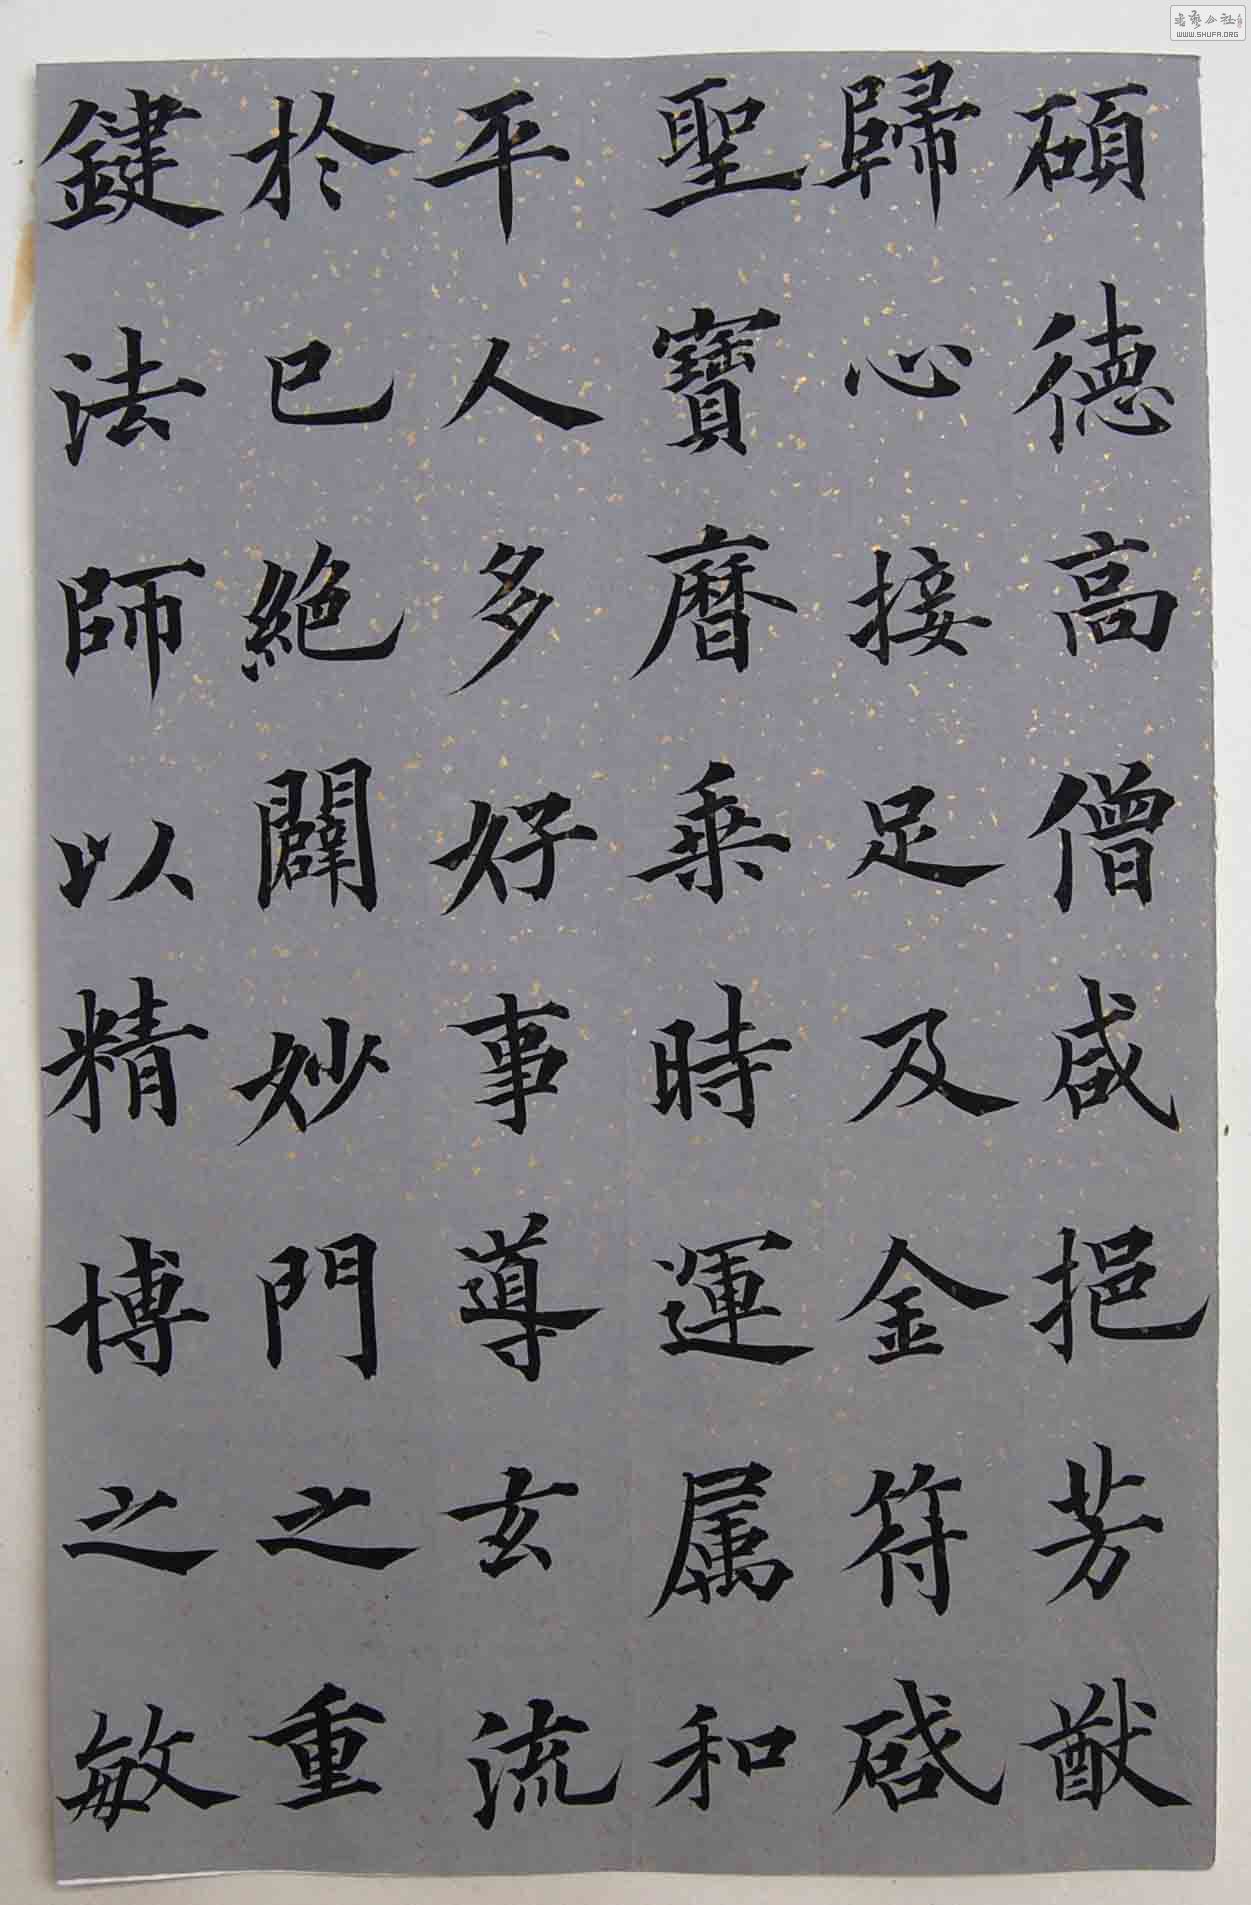 碩德高僧咸挹芳猷
歸心接足及金符啓
聖寶曆乘時運属和
平人多好事導玄流
於已絶闢妙門之重
鍵法師以精博之敏
WWW.SHUFA.ORG